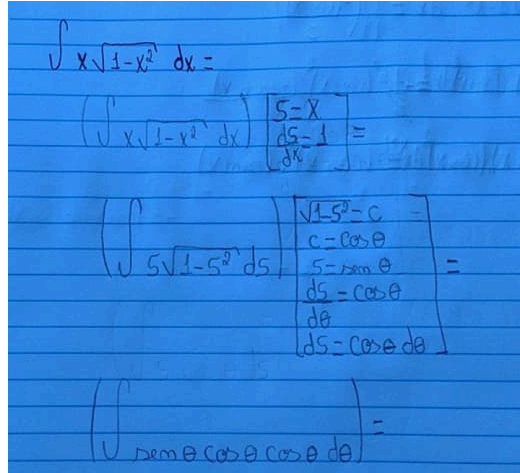 ∫ x√(1-x²) dx =
(∫ x√(1-x²) dx) [s=x
ds/dx=1] =
(∫ s√(1-s²) ds) [√(1-s²)=c
c=cosθ
s=senθ
ds/dθ=cosθ
ds=cosθ dθ] =
(∫ senθ cosθ cosθ dθ) =